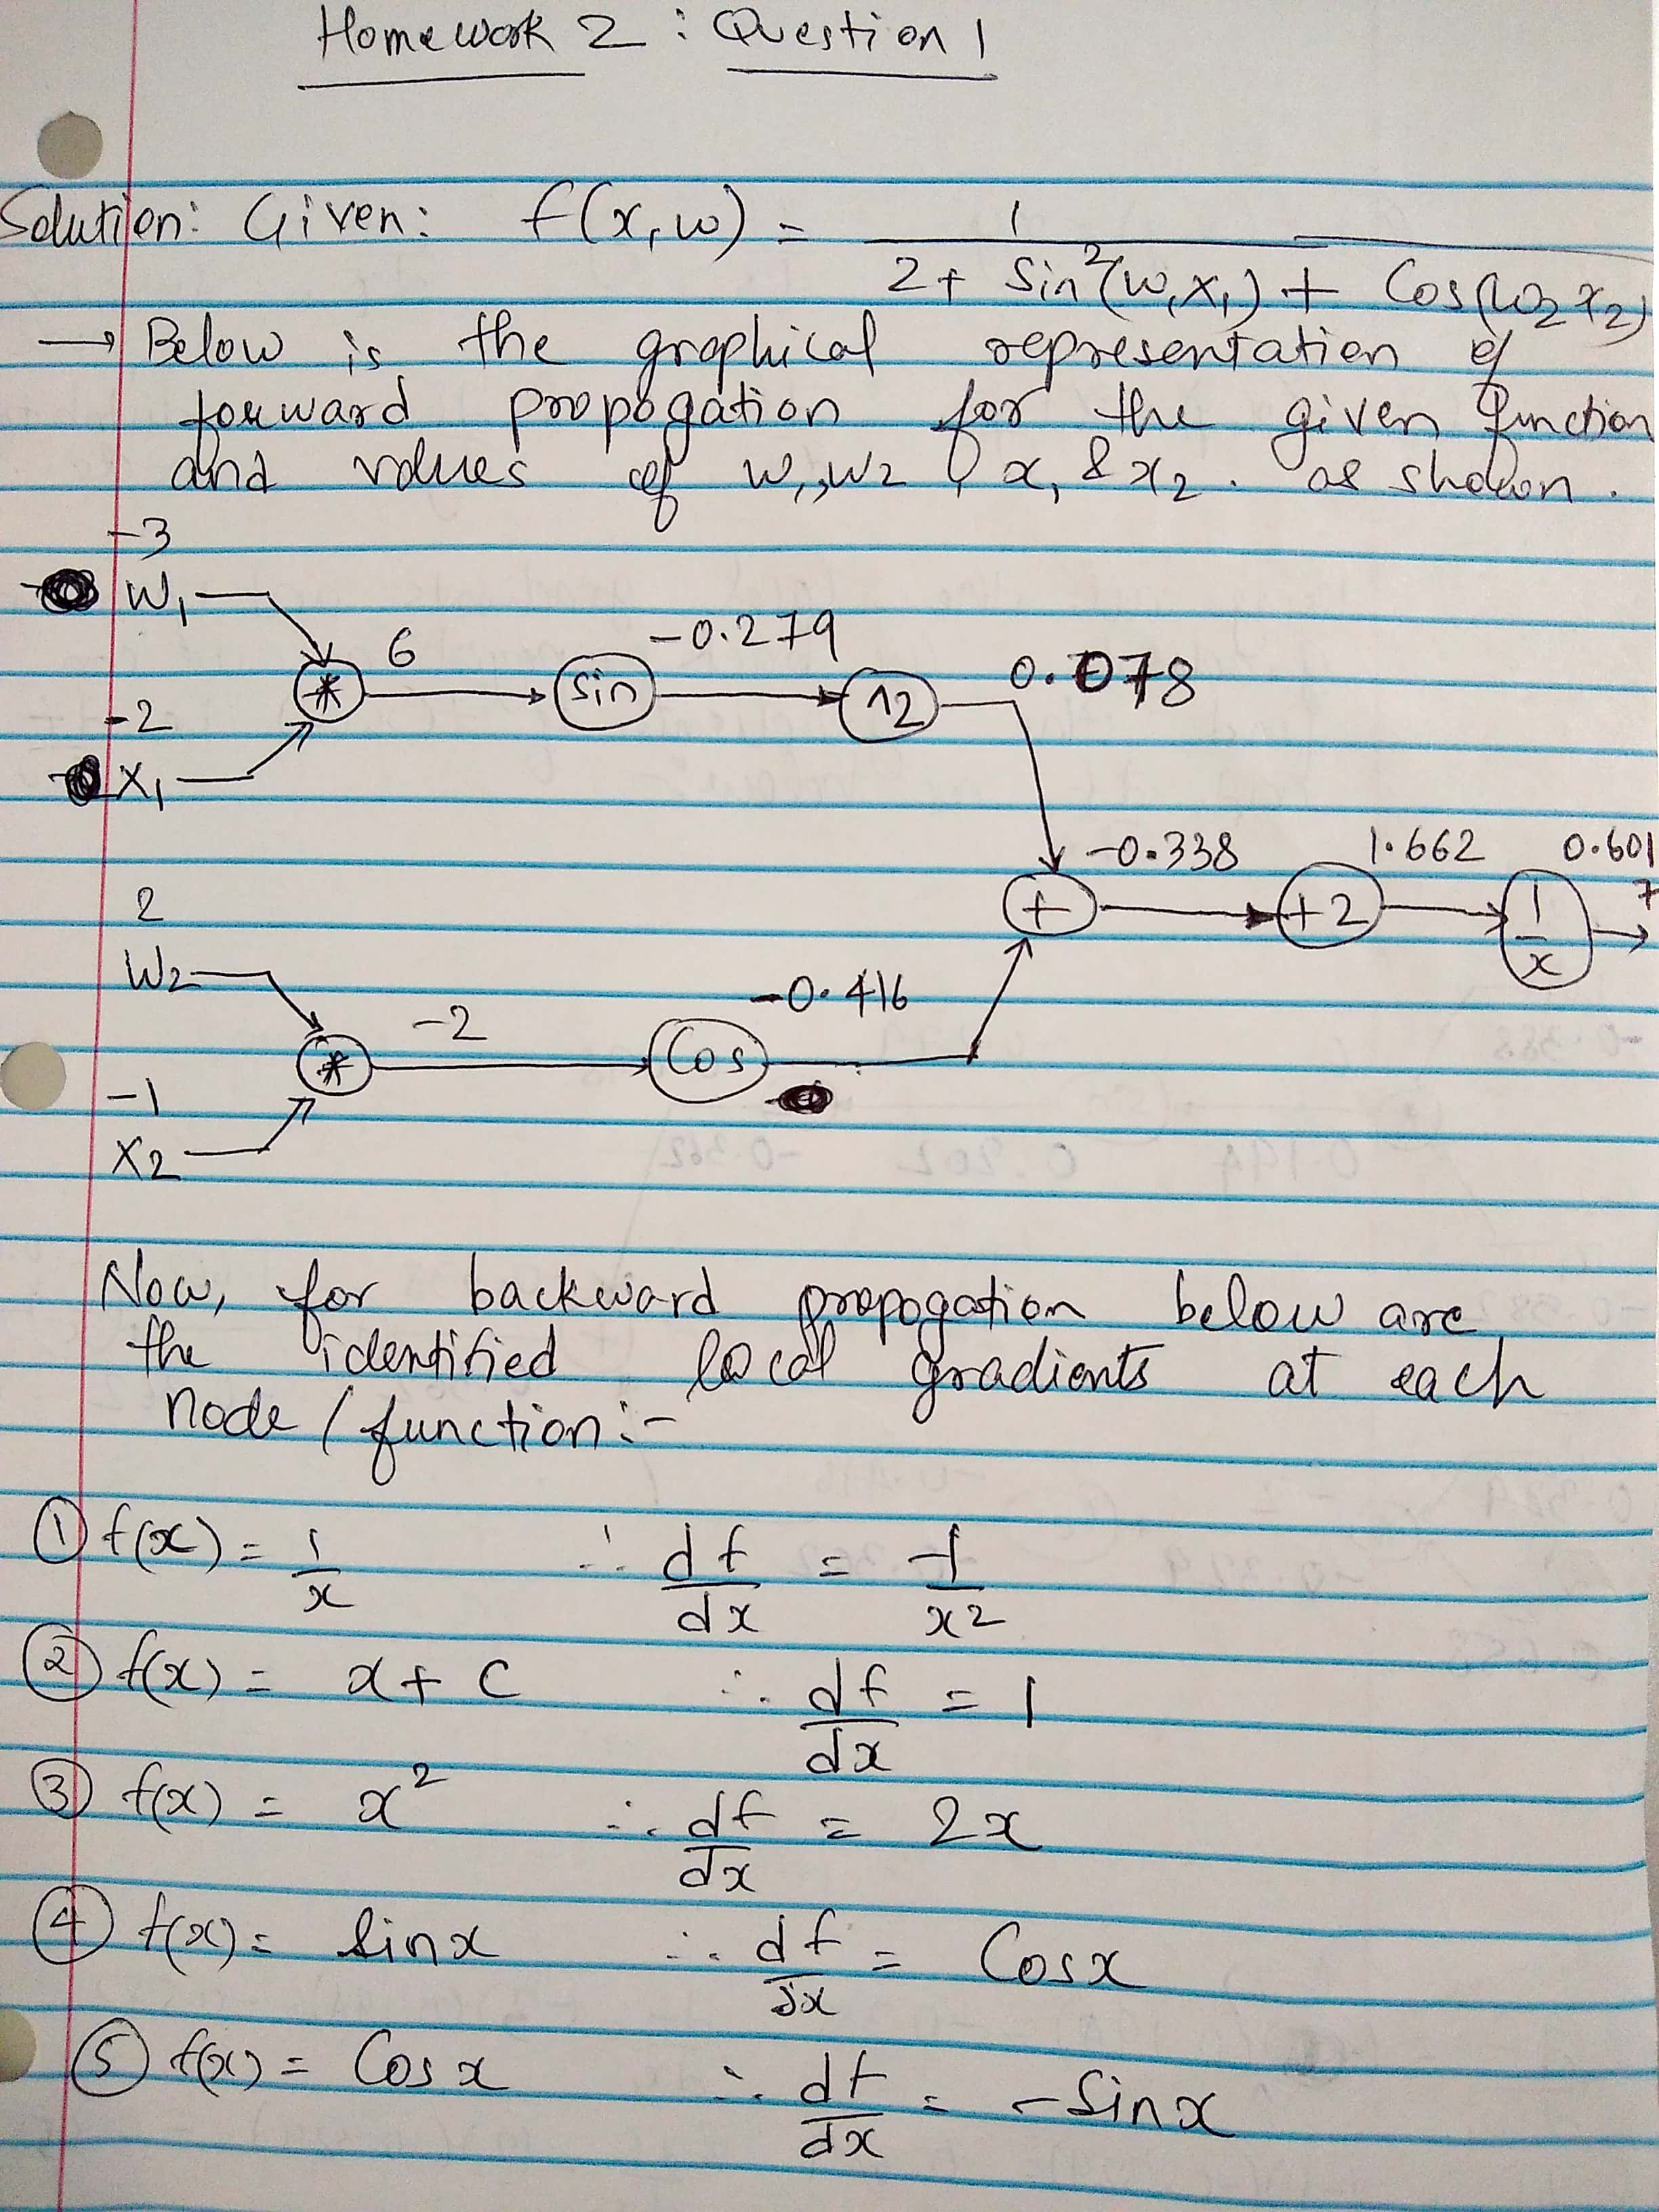 Homework 2 : Question 1
Solution: Given: f(x, w) = 1 / 2 + Sin²(w₁x₁) + Cos(w₂x₂)
→ Below is the graphical representation of
forward propogation for the given function
and values of w₁, w₂, x₁ & x₂. as shown.
-3
W₁
6
-0.279
0.078
* sin ^2
-2
X₁
-0.338 1.662 0.601
2
+ +2 1/x
W₂
-0.416
-2
* Cos
-1
X₂
Now, for backward propogation below are
the identified local gradients at each
node / function :-
① f(x) = 1/x ∴ df/dx = -1/x²
② f(x) = x + C ∴ df/dx = 1
③ f(x) = x² ∴ df/dx = 2x
④ f(x) = Sinx ∴ df/dx = Cosx
⑤ f(x) = Cosx ∴ df/dx = -Sinx